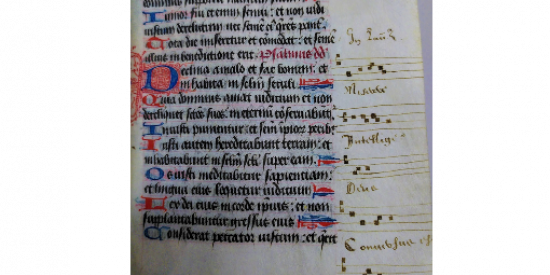 Iunior fui etenim senui: et non vidi
iustum derelictum nec semē eꝰ q̄rēs panē.
Tota die miseretur et cōmodat: et semē
illius in benedictione erit. Psalmus dd
Declina a malo et fac bonum: et
inhabita in sclm̄ seculi
Quia dominus amat iudicium et non
derelinquet sctōs suos: in eternū cōseruabūt
Iniusti punientur: et semē ipiorū peribit
Iusti autem hereditabunt terram: et
inhabitabunt in sclm̄ scli super eam.
Os iusti meditabitur sapientiam:
et lingua eius loquetur iudicium
Lex dei eius in corde ipsius: et non
supplantabuntur gressus eius
Considerat peccator iustum: et querit
Miserere
Intellige
Deus